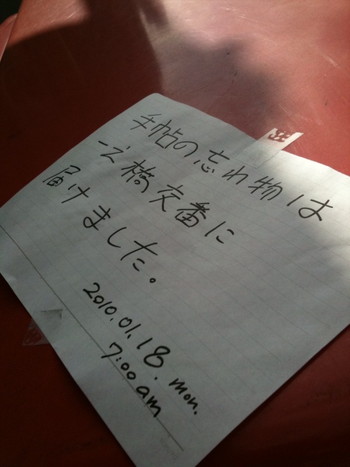 手帖の忘れ物は
一之橋交番に
届けました。
2010.01.18.mon.
7:00am